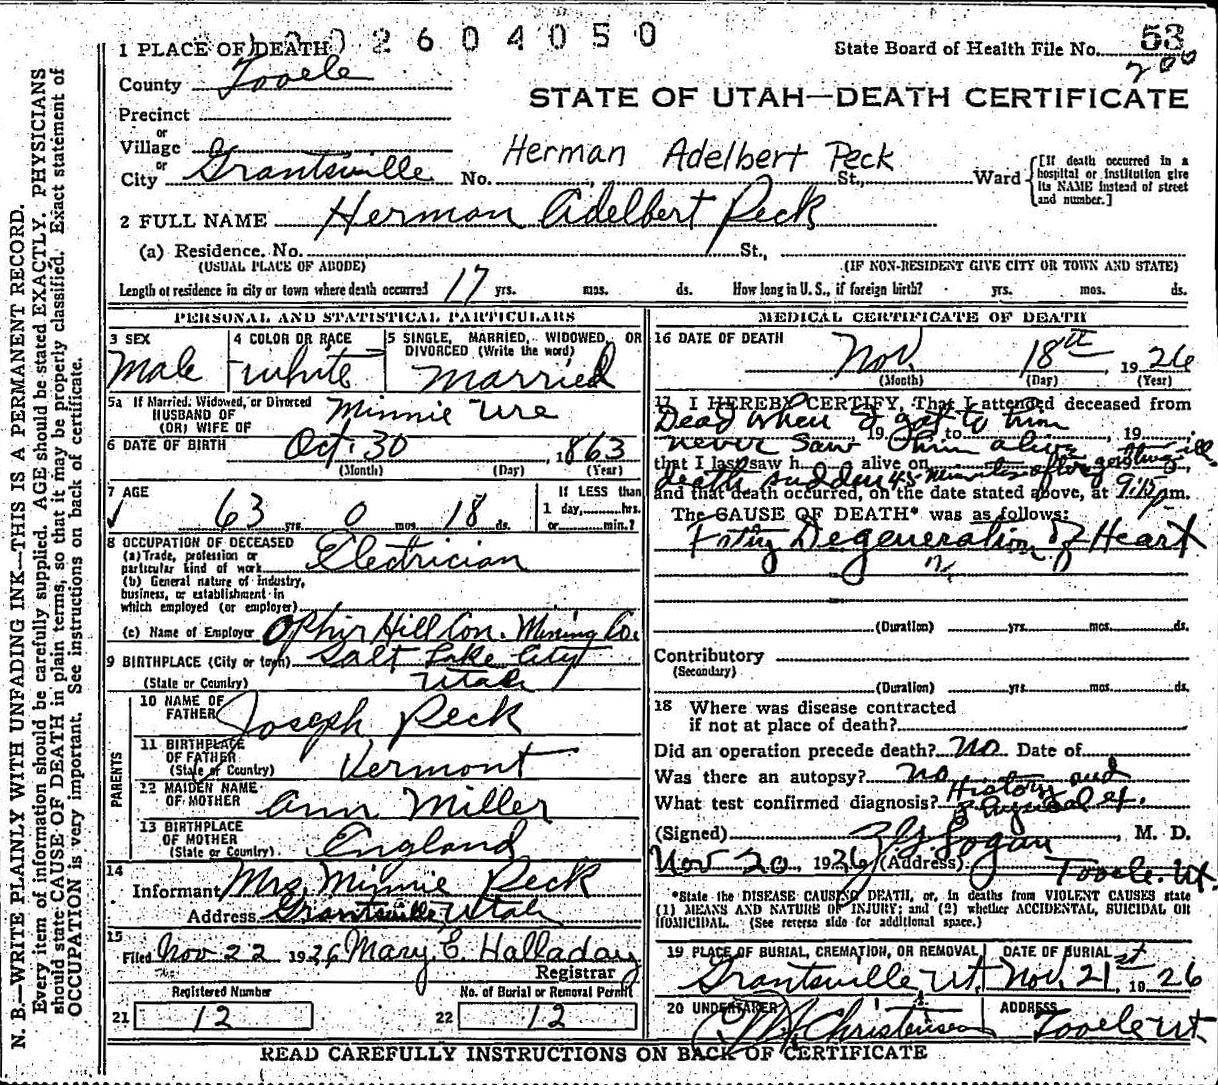 1 PLACE OF DEATH 002604050 State Board of Health File No. 53
200
County Tooele
STATE OF UTAH—DEATH CERTIFICATE
Precinct
or
Village
or
City Grantsville No. St., Ward
Herman Adelbert Peck
[If death occurred in a hospital or institution give its NAME instead of street and number.]
2 FULL NAME Herman Adelbert Peck
(a) Residence. No. St.,
(USUAL PLACE OF ABODE) (IF NON-RESIDENT GIVE CITY OR TOWN AND STATE)
Length of residence in city or town where death occurred 17 yrs. mos. ds. How long in U. S., if foreign birth? yrs. mos. ds.
PERSONAL AND STATISTICAL PARTICULARS
3 SEX
Male
4 COLOR OR RACE
white
5 SINGLE, MARRIED, WIDOWED, OR DIVORCED (Write the word)
Married
5a If Married, Widowed, or Divorced
HUSBAND OF
(OR) WIFE OF
Minnie Ure
6 DATE OF BIRTH Oct. 30, 1863
(Month) (Day) (Year)
7 AGE
63 yrs. 0 mos. 18 ds.
If LESS than
1 day, hrs.
or min.?
8 OCCUPATION OF DECEASED
(a) Trade, profession or
particular kind of work Electrician
(b) General nature of industry,
business, or establishment in
which employed (or employer)
(c) Name of Employer Ophir Hill Con. Mining Co.
9 BIRTHPLACE (City or town) Salt Lake City
(State or Country) Utah
PARENTS
10 NAME OF
FATHER Joseph Peck
11 BIRTHPLACE
OF FATHER
(State or Country) Vermont
12 MAIDEN NAME
OF MOTHER Ann Miller
13 BIRTHPLACE
OF MOTHER
(State or Country) England
14
Informant Mrs. Minnie Peck
Address Grantsville, Utah
15
Filed Nov 22 1926 Mary E. Halladay
Registrar
Registered Number No. of Burial or Removal Permit
21 12 22 12
MEDICAL CERTIFICATE OF DEATH
16 DATE OF DEATH
Nov. 18th 1926
(Month) (Day) (Year)
17 I HEREBY CERTIFY, That I attended deceased from
Dead when I got to him
, 19 to , 19
never saw him alive
that I last saw h alive on 19
death sudden 45 minutes after getting ill.
and that death occurred, on the date stated above, at 9:15 p m.
The CAUSE OF DEATH* was as follows:
Fatty Degeneration of Heart
(Duration) yrs. mos. ds.
Contributory
(Secondary)
(Duration) yrs. mos. ds.
18 Where was disease contracted
if not at place of death?
Did an operation precede death? no Date of
Was there an autopsy? no
What test confirmed diagnosis? History and Physical ex.
(Signed) Logan, M. D.
Nov 20 1926 (Address) Tooele. Ut.
*State the DISEASE CAUSING DEATH, or, in deaths from VIOLENT CAUSES state
(1) MEANS AND NATURE OF INJURY; and (2) whether ACCIDENTAL, SUICIDAL OR
HOMICIDAL. (See reverse side for additional space.)
19 PLACE OF BURIAL, CREMATION, OR REMOVAL DATE OF BURIAL
Grantsville Ut. Nov. 21st 1926
20 UNDERTAKER ADDRESS
Christensen Tooele Ut
READ CAREFULLY INSTRUCTIONS ON BACK OF CERTIFICATE
N. B.—WRITE PLAINLY WITH UNFADING INK—THIS IS A PERMANENT RECORD.
Every item of information should be carefully supplied. AGE should be stated EXACTLY. PHYSICIANS
should state CAUSE OF DEATH in plain terms, so that it may be properly classified. Exact statement of
OCCUPATION is very important. See instructions on back of certificate.